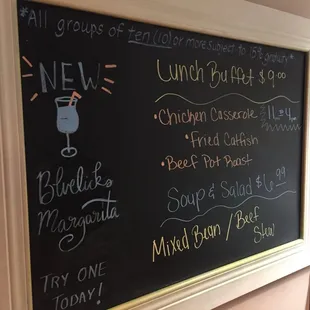 *All groups of ten (10) or more subject to 15% gratuity*
NEW
Bluelick
Margarita
TRY ONE
TODAY!
Lunch Buffet $9.00
• Chicken Casserole
11 - 4
• Fried Catfish
• Beef Pot Roast
Soup & Salad $6.99
Mixed Bean / Beef
Stew